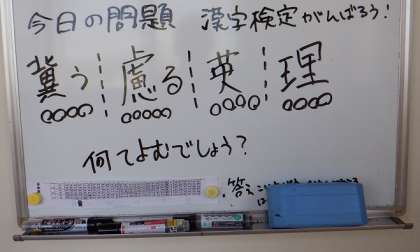 今日の問題 漢字検定がんばろう!
冀う 慮る 英 理
何てよむでしょう?
答え